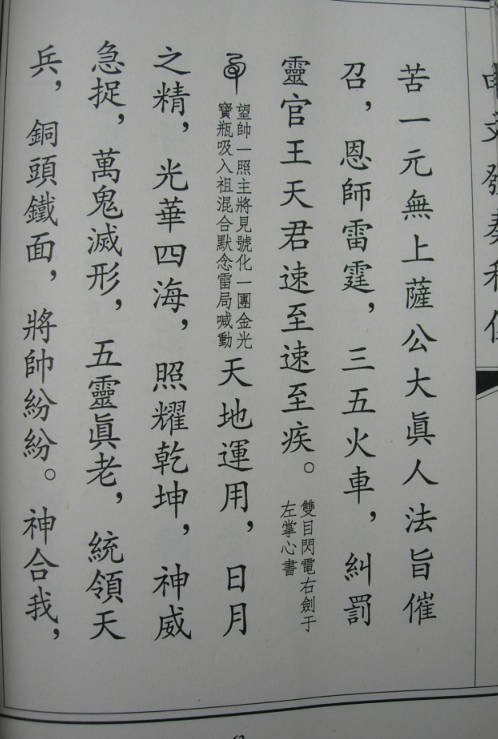 苦一元無上薩公大眞人法旨催
召，恩師雷霆，三五火車，糾罰
靈官王天君速至速至疾。雙目閃電右劍于
左掌心書
望帥一照主將見號化一團金光
寶瓶吸入祖混合默念雷局喊動天地運用，日月
之精，光華四海，照耀乾坤，神威
急捉，萬鬼滅形，五靈眞老，統領天
兵，銅頭鐵面，將帥紛紛。神合我，